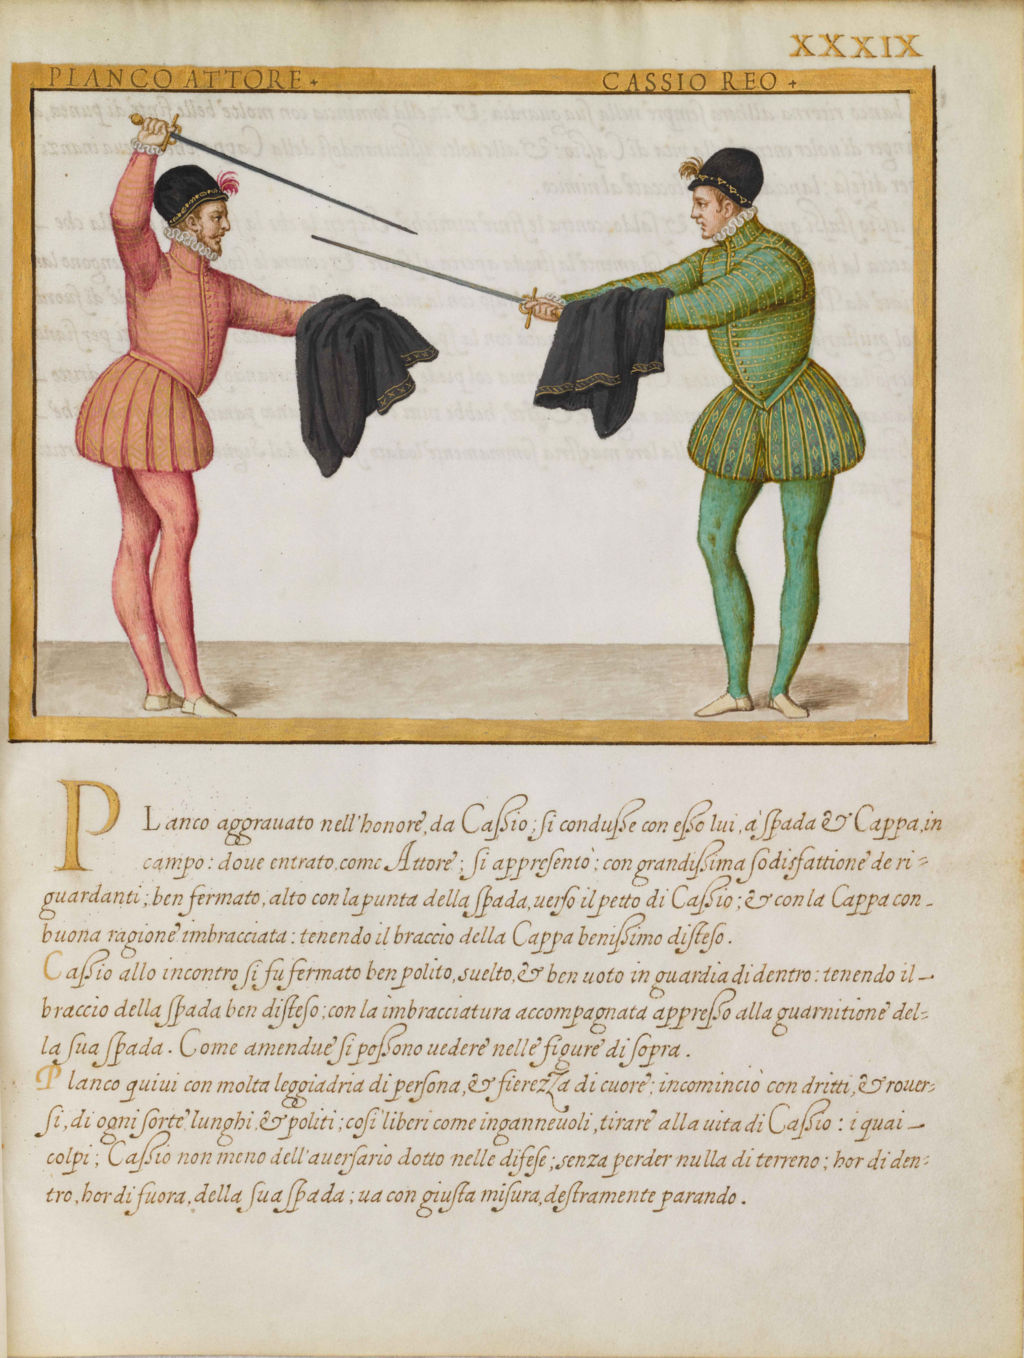 XXXIX
PLANCO ATTORE +
CASSIO REO +
PLanco aggrauato nell'honore, da Caſſio; ſi conduſſe con eſſo lui, à ſpada & Cappa, in
campo: doue entrato, come Attore; ſi appreſentò; con grandiſſima ſodisfattione de ri=
guardanti; ben fermato, alto con la punta della ſpada, uerſo il petto di Caſſio; & con la Cappa con
buona ragione imbracciata: tenendo il braccio della Cappa beniſſimo diſteſo.
Caſſio allo incontro ſi fù fermato ben polito, suelto, & ben uoto in guardia di dentro: tenendo il
braccio della ſpada ben diſteſo; con la imbracciatura accompagnata appreſſo alla guarnitione del=
la ſua ſpada. Come amendue ſi poſſono uedere nelle figure di ſopra.
Planco quiui con molta leggiadria di perſona, & fierezza di cuore; incominciò con dritti, & rouer=
ſi, di ogni ſorte, lunghi, & politi; coſi liberi come inganneuoli, tirare alla uita di Caſſio: i quai
colpi; Caſſio non meno dell'auerſario dotto nelle difeſe; senza perder nulla di terreno; hor di den=
tro, hor di fuora, della ſua ſpada; ua con giuſta miſura, deſtramente parando.